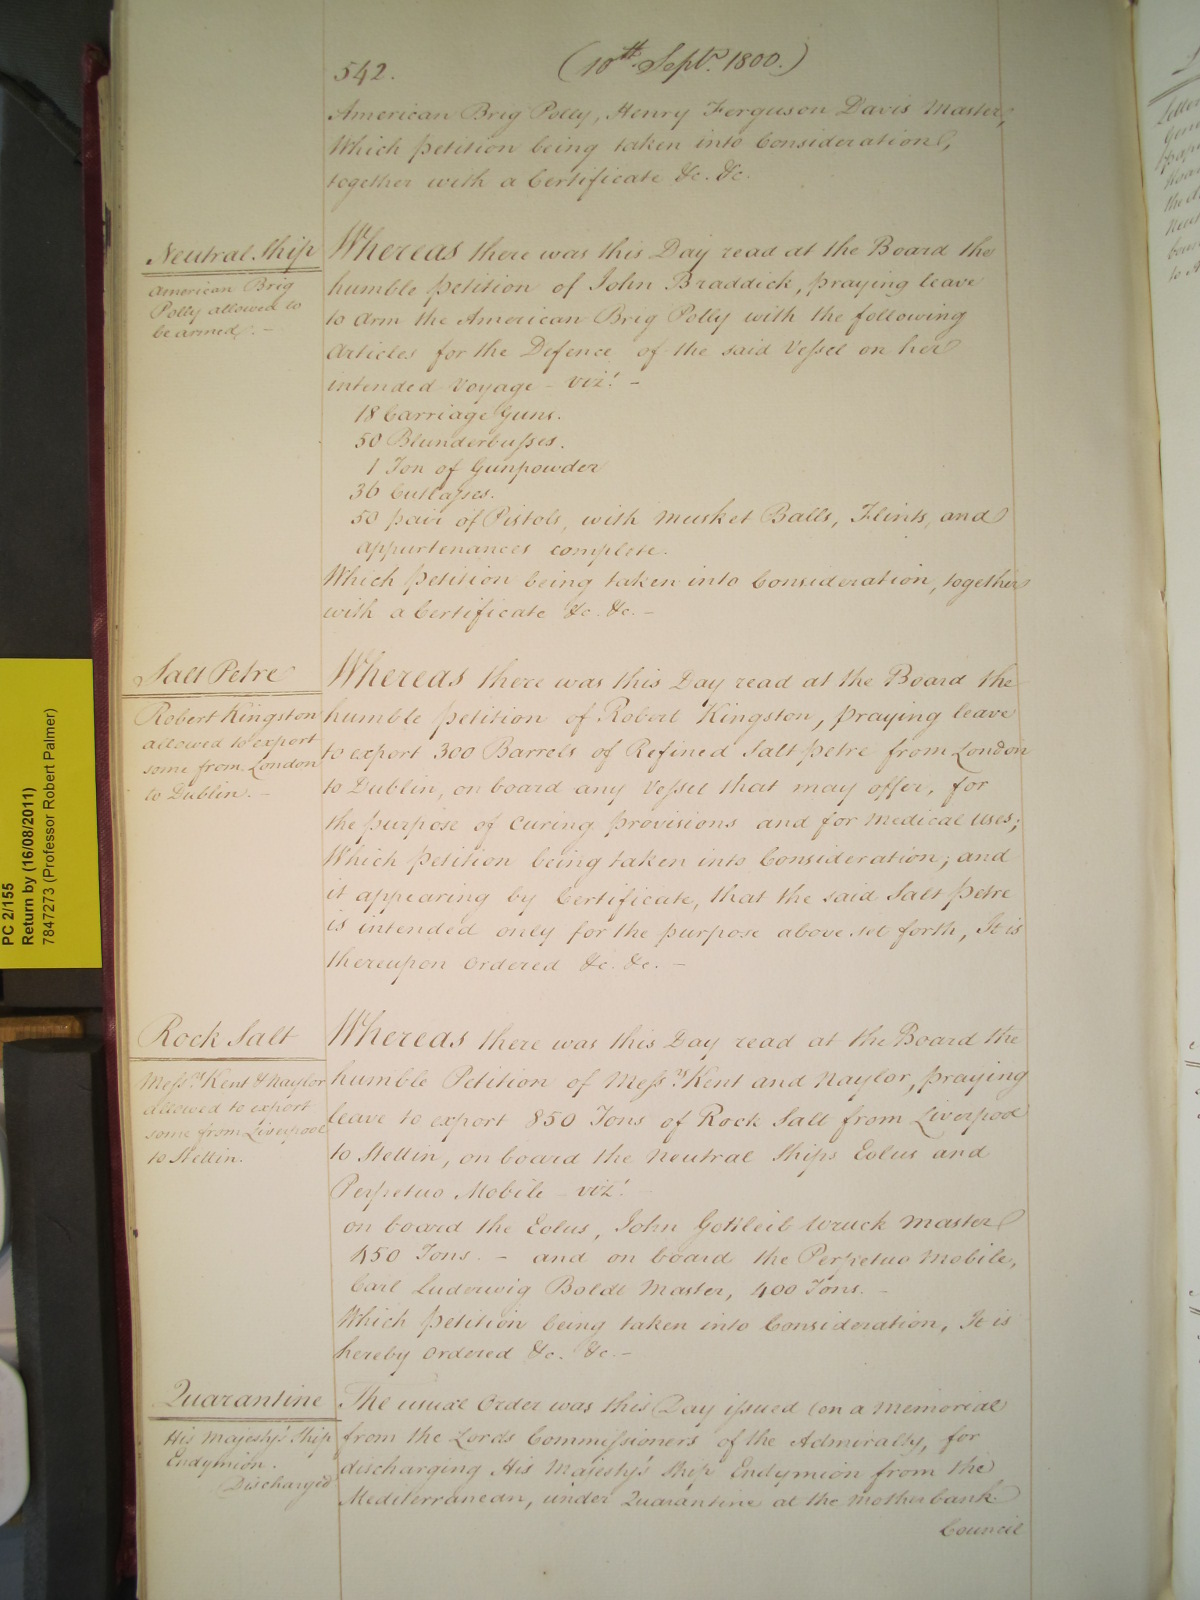 542.
(10th Septr. 1800.)
American Brig Polly, Henry Ferguson Davis Master,
Which petition being taken into Consideration,
together with a Certificate &c. &c.
Neutral Ship
American Brig
Polly allowed to
be armed. -
Whereas there was this Day read at the Board the
humble petition of John Braddick, praying leave
to arm the American Brig Polly with the following
Articles for the Defence of the said Vessel on her
intended Voyage - vizt. -
18 Carriage Guns.
50 Blunderbusses.
1 Ton of Gunpowder
36 Cutlasses.
50 pair of Pistols, with Musket Balls, Flints, and
appurtenances complete.
Which petition being taken into Consideration, together
with a Certificate &c. &c. -
Salt Petre
Robert Kingston
allowed to export
some from London
to Dublin. -
Whereas there was this Day read at the Board the
humble petition of Robert Kingston, praying leave
to export 300 Barrels of Refined Salt petre from London
to Dublin, on board any Vessel that may offer, for
the purpose of curing provisions and for Medical uses;
Which petition being taken into Consideration; and
it appearing by Certificate, that the said Salt petre
is intended only for the purpose above set forth, It is
thereupon Ordered &c. &c. -
Rock Salt
Messrs. Kent & Naylor
allowed to export
some from Liverpool
to Stettin.
Whereas there was this Day read at the Board the
humble Petition of Messrs. Kent and Naylor, praying
leave to export 850 Tons of Rock Salt from Liverpool
to Stettin, on board the Neutral Ships Eolus and
Perpetuo Mobile - vizt. -
on board the Eolus, John Gotleib Wruck Master
450 Tons. - and on board the Perpetuo Mobile,
Carl Ludewig Boldt Master, 400 Tons. -
Which petition being taken into Consideration, It is
hereby Ordered &c. &c. -
Quarantine
His Majesty's Ship
Endymion.
Discharged
The usual Order was this Day issued (on a Memorial
from the Lords Commissioners of the Admiralty, for
discharging His Majesty's Ship Endymion from the
Mediterranean, under Quarantine at the Motherbank
Council
PC 2/155
Return by (16/08/2011)
7847273 (Professor Robert Palmer)